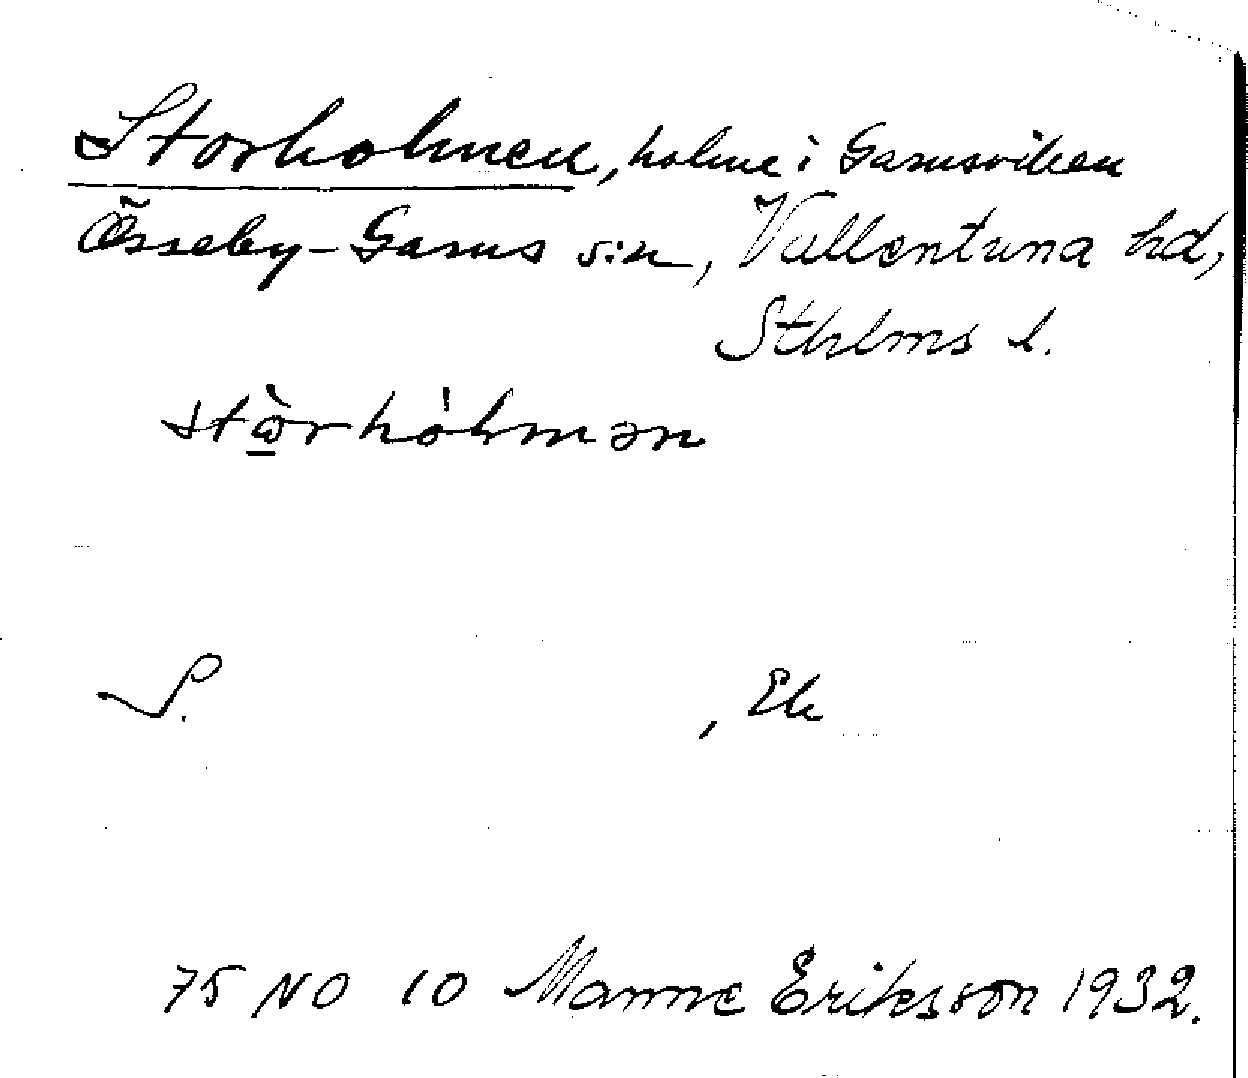 Storholmen, holme i Garnsviken
Össeby-Garns sn, Vallentuna hd,
Sthlms l.
stò̱rhólmən
S. , Ek
75 NO 10 Manne Eriksson 1932.